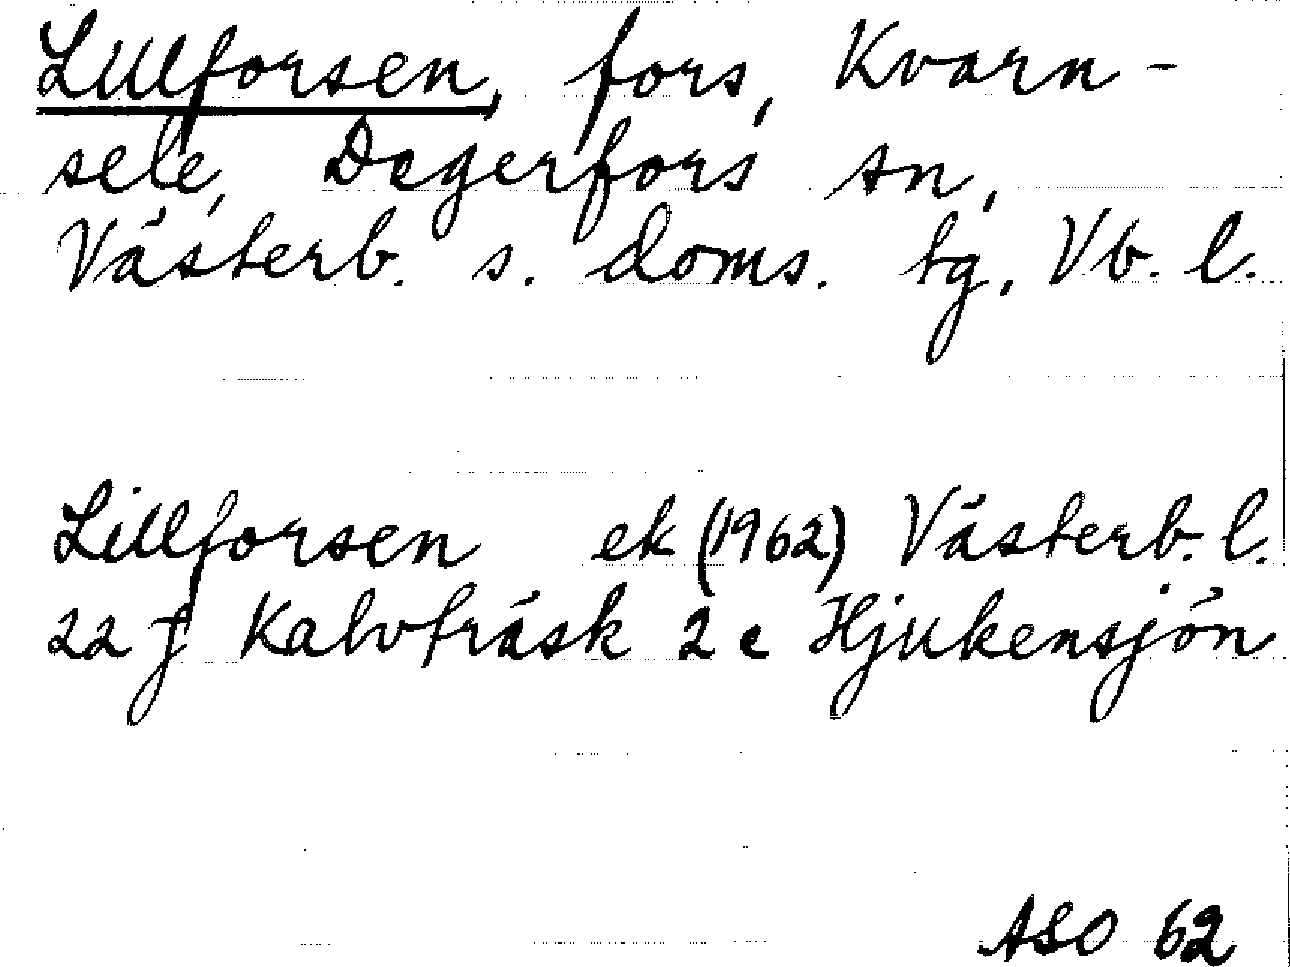 Lillforsen, fors, Kvarn-
sele, Degerfors sn,
Västerb. s. doms. tg, Vb. l.
Lillforsen ek (1962) Västerb. l.
22 f Kalvträsk 2 c Hjukensjön
ASO 62